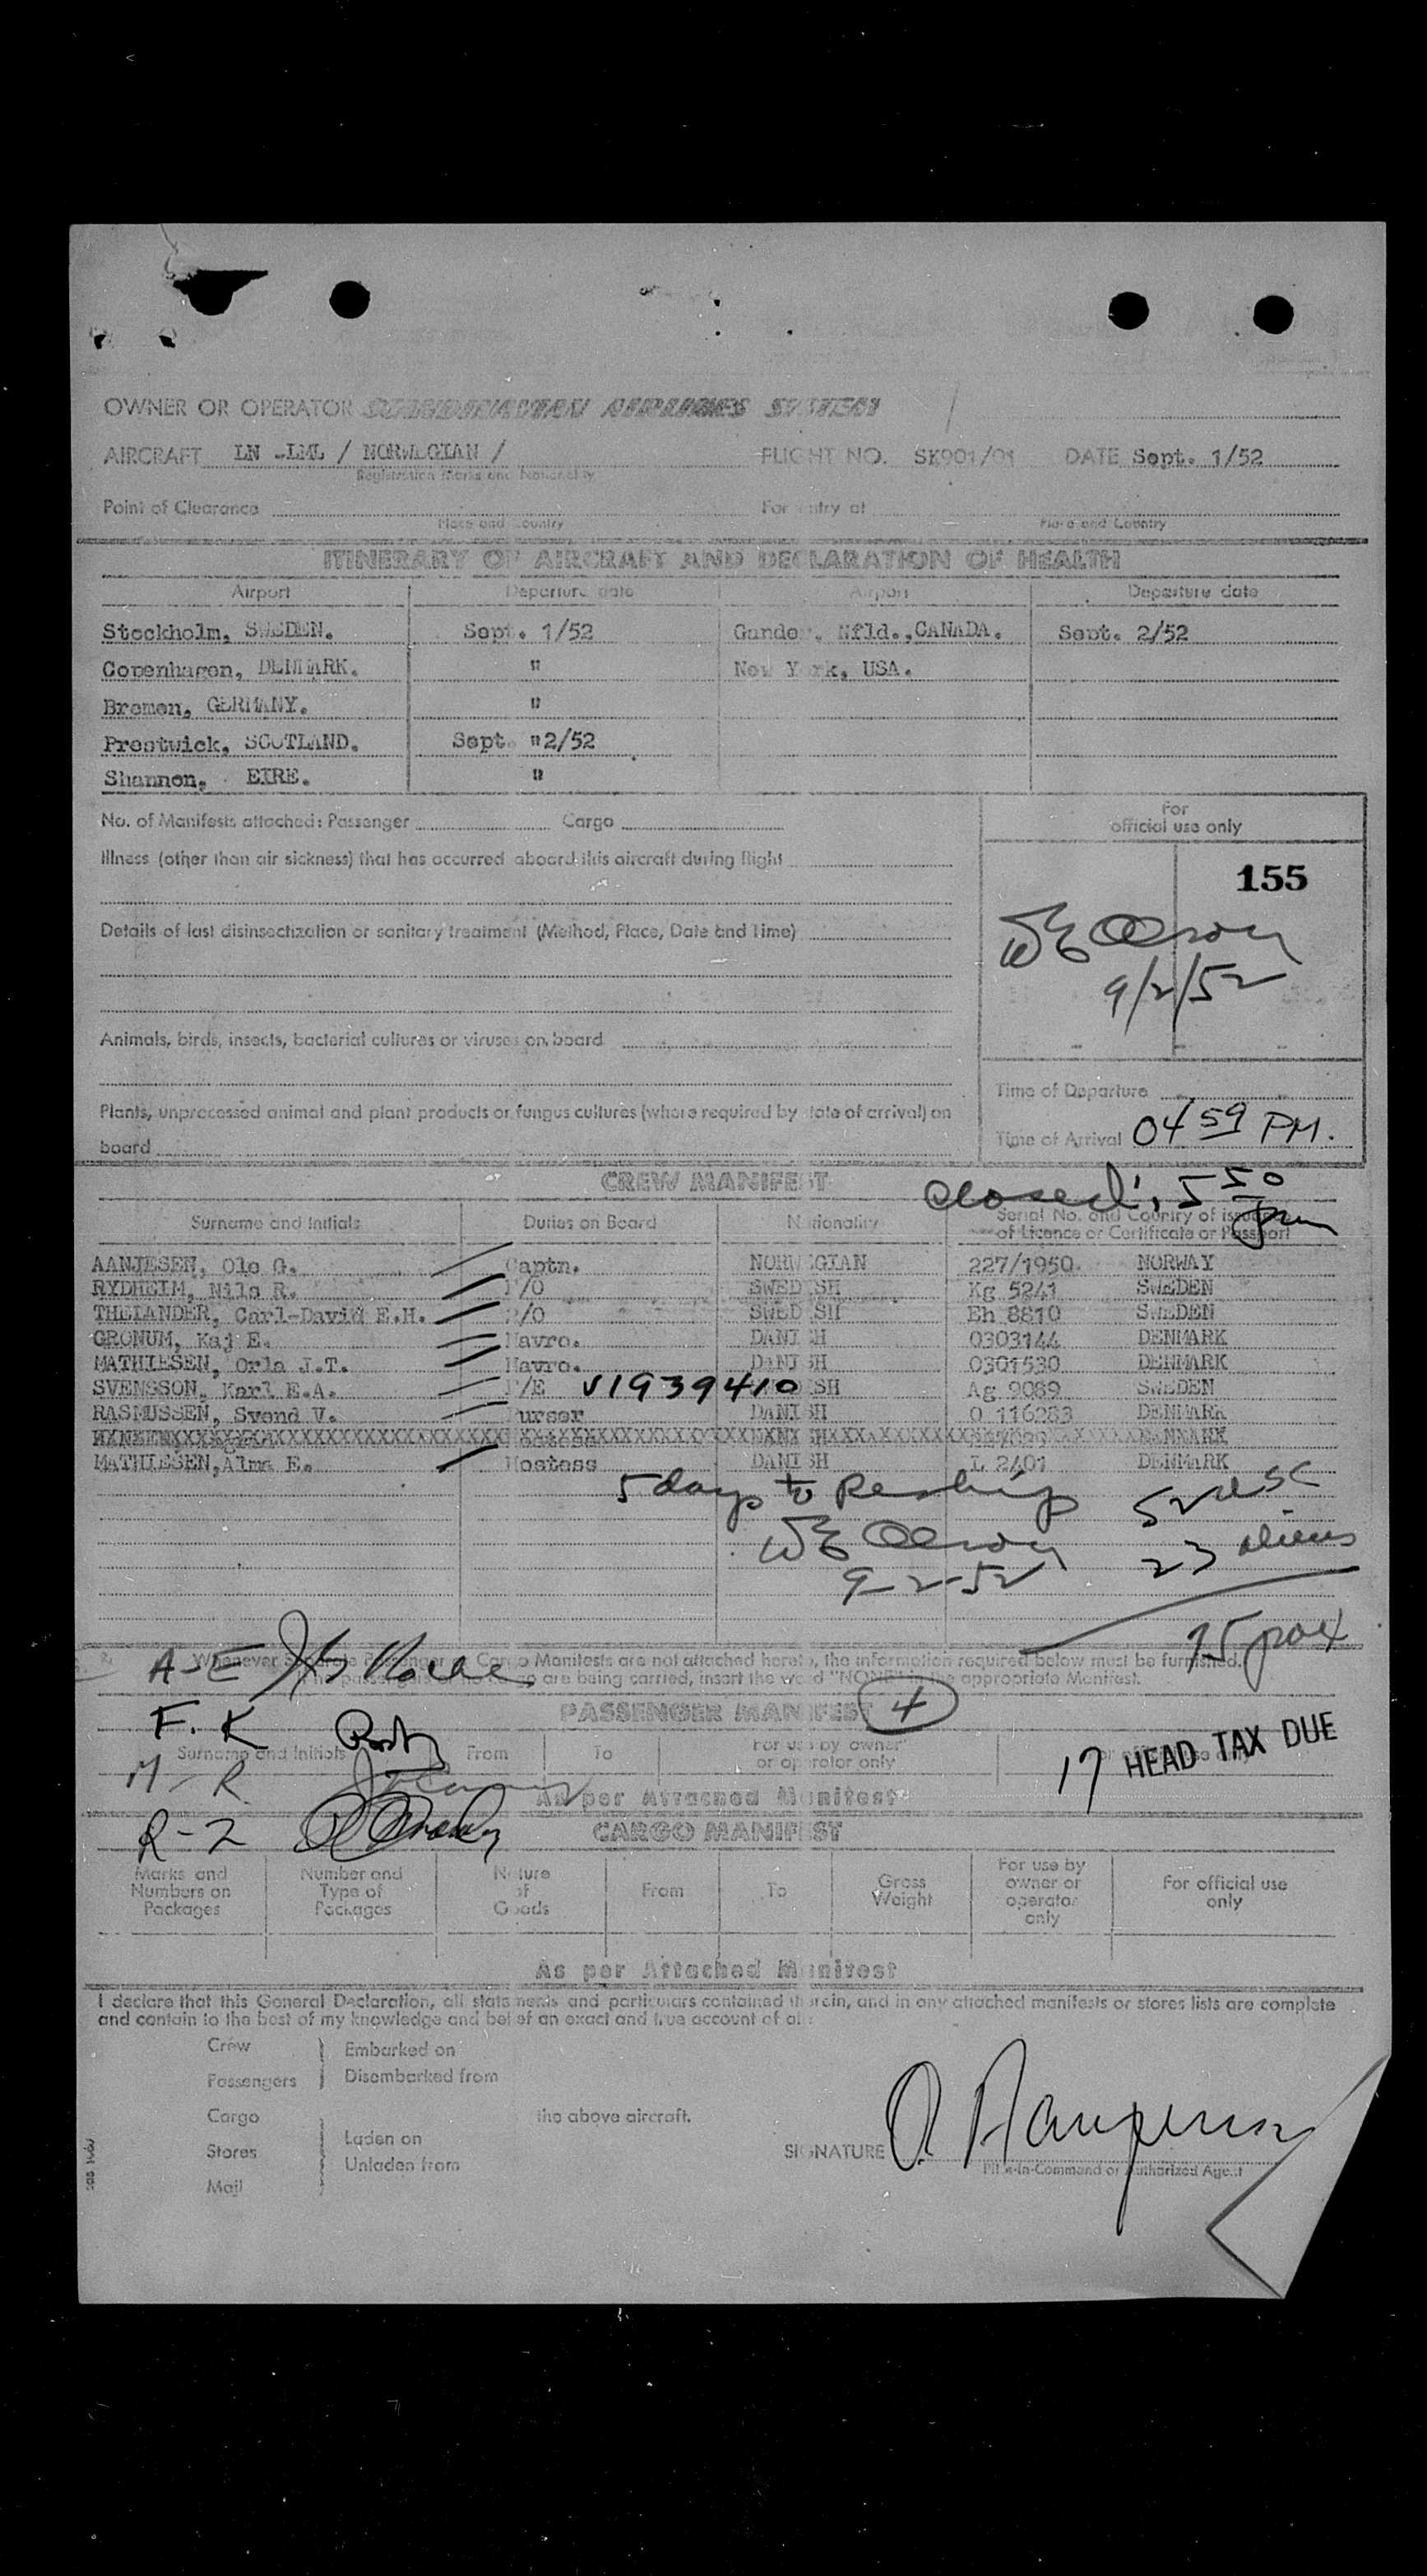 OWNER OR OPERATOR SCANDINAVIAN AIRLINES SYSTEM
AIRCRAFT LN -LML / NORWEGIAN / FLIGHT NO. SK901/01 DATE Sept. 1/52
Registration Marks and Nationality
Point of Clearance For entry at
Place and Country Place and Country
ITINERARY OF AIRCRAFT AND DECLARATION OF HEALTH
Airport Departure date Airport Departure date
Stockholm, SWEDEN. Sept. 1/52 Gander, Nfld.,CANADA. Sept. 2/52
Copenhagen, DENMARK. " New York, USA.
Bremen, GERMANY. "
Prestwick, SCOTLAND. Sept. "2/52
Shannon, EIRE. "
No. of Manifests attached: Passenger Cargo
For
official use only
Illness (other than air sickness) that has occurred aboard this aircraft during flight
155
Details of last disinsectization or sanitary treatment (Method, Place, Date and Time)
9/2/52
Animals, birds, insects, bacterial cultures or viruses on board
Time of Departure
Plants, unprocessed animal and plant products or fungus cultures (where required by state of arrival) on
board
Time of Arrival 04 59 PM.
CREW MANIFEST
closed 5 50 pm
Surname and Initials Duties on Board Nationality Serial No. and Country of issue
of Licence or Certificate or Passport
AANJESEN, Ole G. Captn. NORWEGIAN 227/1950 NORWAY
RYDHEIM, Nils R. F/O SWEDISH Kg 5241 SWEDEN
THELANDER, Carl-David E.H. /O SWEDISH Eh 8810 SWEDEN
GRONUM, Kaj E. Navro. DANISH 0303144 DENMARK
MATHIESEN, Orla J.T. Navro. DANISH 0301530 DENMARK
SVENSSON, Karl E.A. F/E V1939410 SH Ag 9089 SWEDEN
RASMUSSEN, Svend V. Purser DANISH O 116283 DENMARK
MATHIESEN,Alma E. Hostess DANISH L 2401 DENMARK
5 days to Reship 52 USC
23 aliens
9-2-52
75 pax
Whenever Separate Passenger or Cargo Manifests are not attached hereto, the information required below must be furnished.
passengers or no cargo are being carried, insert the word "NONE" in the appropriate Manifest.
A-E
F. K
M - R
R-Z
PASSENGER MANIFEST 4
Surname and Initials From To For use by owner
or operator only
17 HEAD TAX DUE
As per Attached Manifest
CARGO MANIFEST
Marks and Numbers on Packages Number and Type of Packages Nature of Goods From To Gross Weight For use by owner or operator only For official use only
As per Attached Manifest
I declare that this General Declaration, all statements and particulars contained therein, and in any attached manifests or stores lists are complete
and contain to the best of my knowledge and belief an exact and true account of all:
Crew Embarked on
Passengers Disembarked from
Cargo the above aircraft.
Stores Laden on
Unladen from
Mail
SIGNATURE
Pilot-in-Command or Authorized Agent